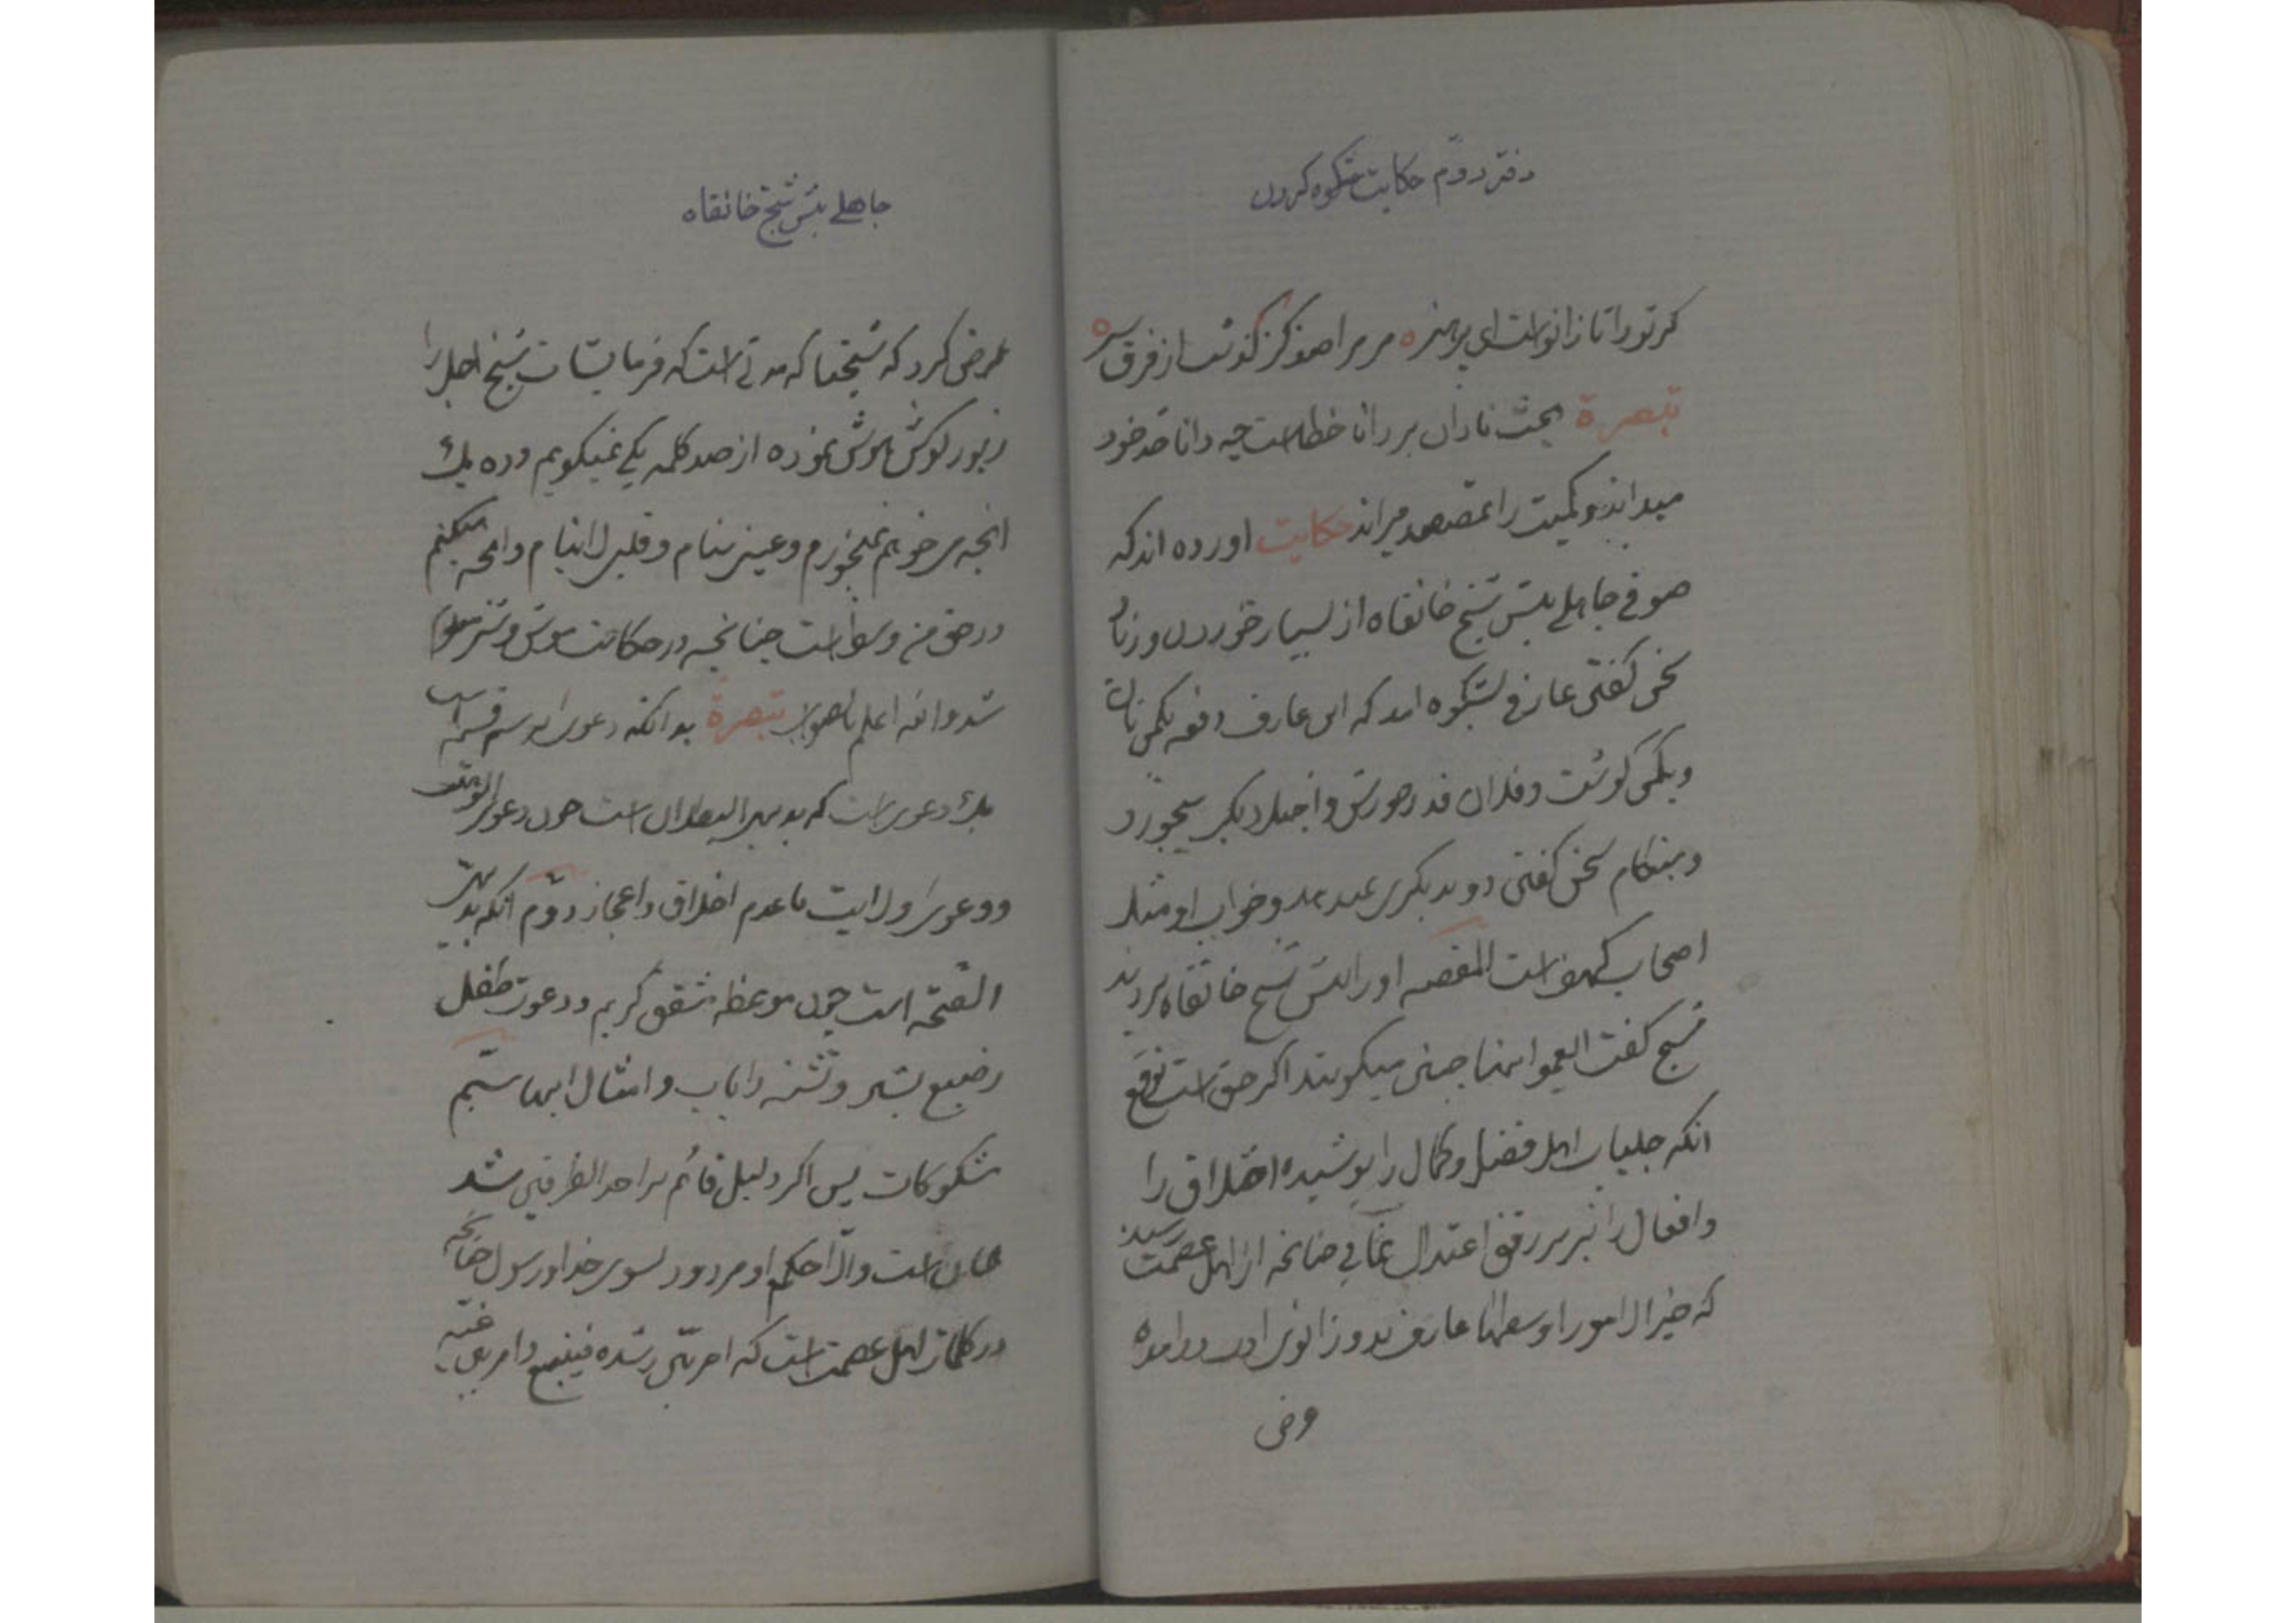 دفتر دوّم حکایت شکوه کردن
کر تو را تا زانو است ای پر هنر ه مر مرا صد کز کذشت از فرق سر ه
تبصرة بحث نادان بر دانا خطاست چه دانا حد خود
میداند و کمیت را بمقصد میراند حکایت اورده اند که
صوفی جاهلی پیش شیخ خانقاه از بسیار خوردن و زیاد
سخن کفتن عارفی بشکوه امد که این عارف دفعه یکمن نان
و یکمن کوشت و فلان قدر خورش واجیل دیکر میخورد
و بهنکام سخن کفتن و خواب او مثل
اصحاب کهف است القصه او را پیش شیخ خانقاه بردند
شیخ کفت اینها چنین میکویند اکر حق است توقع
انکه جلباب اهل فضل و کمال را پوشیده اخلاق را
و افعال را نیز بر رفق اعتدال نمائی چنانچه از اهل عصمت رسیده
که خیر الامور اوسطها عارف بدو زانوی ادب درامده
عرض
جاهلے پیش شیخ خانقاه
عرض کرد که شیخنا که مدتی است که فرمایشات شیخ اجل را
زیور کوش هوش نموده از صد کلمه یکی نمیکویم و ده یک
انچه میخواهم نمیخورم و عینی تنام و قلبی لا ینام و انچه میکنم
در حق من وسط است چنانچه در حکایت موش و شتر معلوم
شد و الله اعلم بالصواب تبصرة بدانکه دعوی بر سه قسم است
یک دعوی است که بدیهی البطلان است چون دعوی الوهیت
و دعوی ولایت با عدم اخلاق و اعجاز دوّم انکه بدیهی
الصحّه است چون موعظه مشفق کریم و دعوت طفل
رضیع بشیر و تشنه را باب و امثال اینها سیّم
مشکوکات پس اکر دلیل قائم بر احد الطرفین شد
همان است والّا حکم او مردود بسوی خدا و رسول چنانچه
در کلمات اهل عصمت است که امر بیّن رشده فیتبع و امر بیّن غیّه